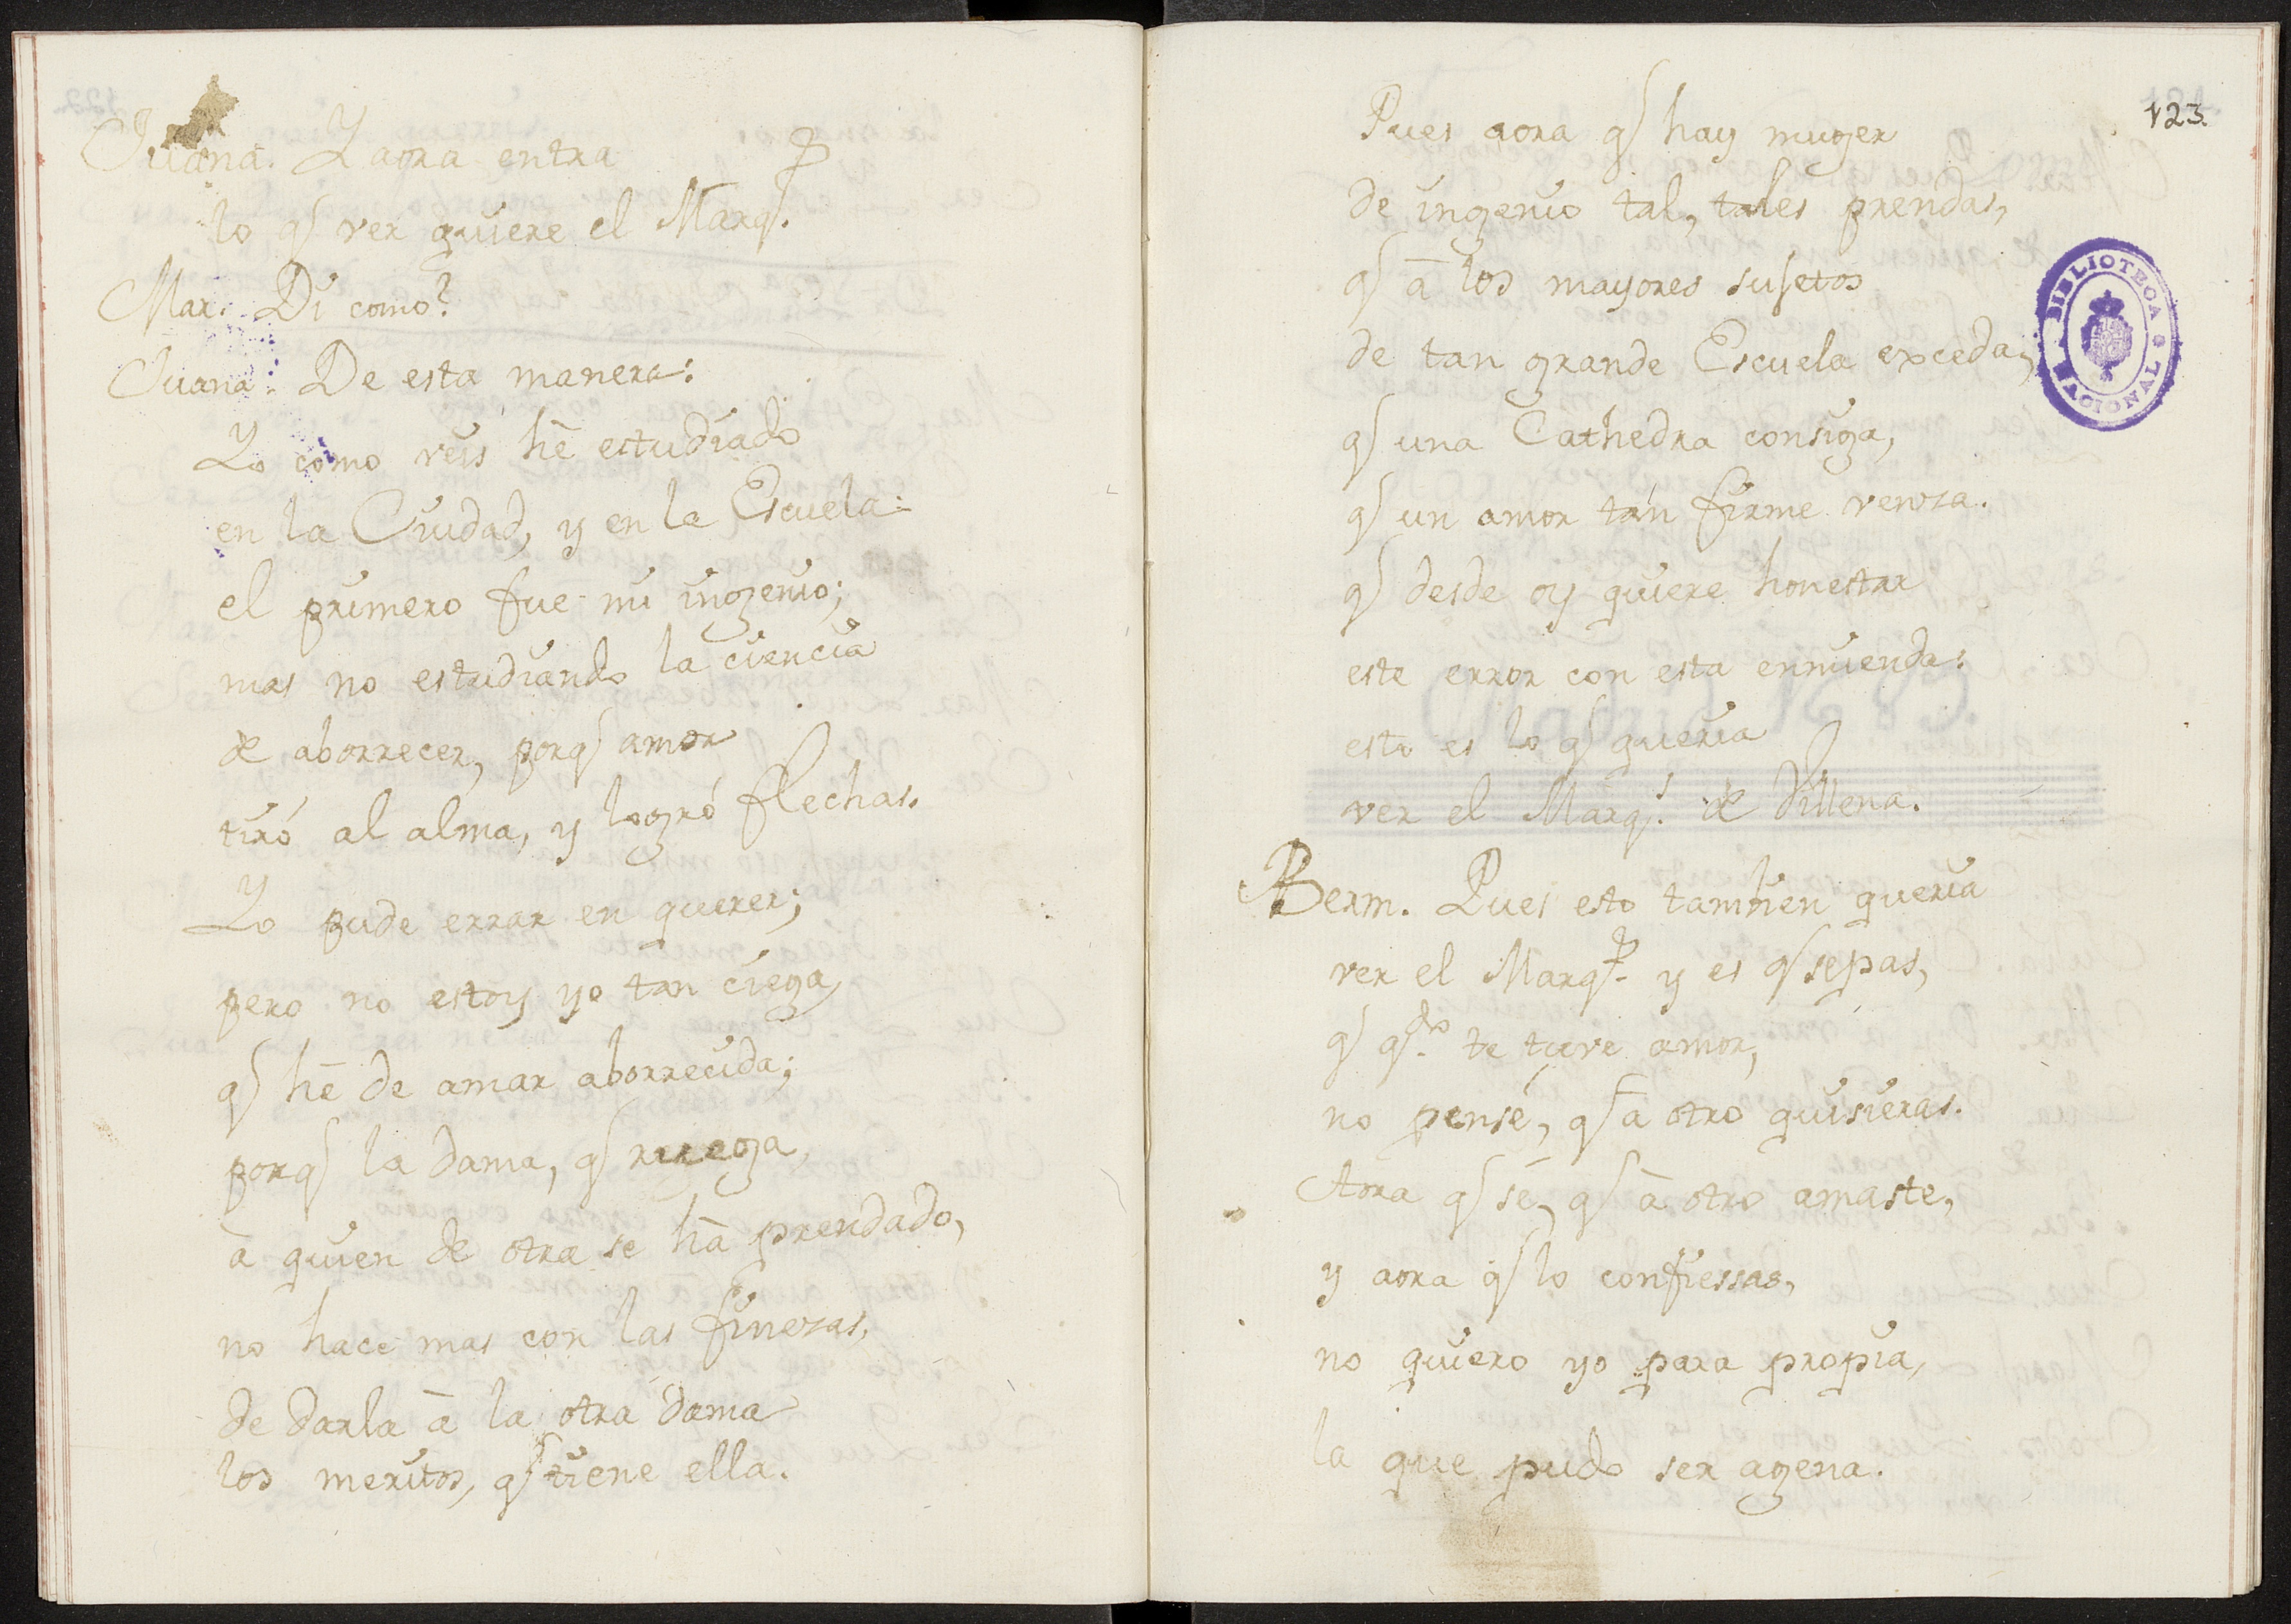 Juana. Y aora entra
lo q ver quiere el Marqs.
Mar. Di como?
Juana. De esta manera:
Yo como veis hē estudiado
en la Ciudad, y en la Escuela:
el primero fue mi ingenio;
mas no estudiando la ciencia
de aborrecer, porq amor
tiró al alma, y logró flechas.
Yo pude errar en querer;
pero no estoy yo tan ciega,
q hē de amar aborrecida;
porq la dama, q ruega,
ā quien de otra se hā prendado,
no hace mas con las finezas,
de darla ā la otra dama
los meritos, q tiene ella.
123.
Pues aora q hay muger
de ingenio tal, tales prendas,
q ā los mayores sujetos
de tan grande Escuela exceda,
q una Cathedra consiga,
q un amor tan firme venza.
q desde oy quiere honestar
este error con esta enmienda:
esto es lo q queria
ver el Marqs. de Villena.
Berm. Pues esto tambien queria
ver el Marqs. y es q sepas,
q qdo. te tuve amor,
no pensé, q ā otro quisieras.
Aora q sé, q ā otro amaste,
y aora q lo confiessas,
no quiero yo para propia,
la que pudo ser agena.
BIBLIOTECA NACIONAL